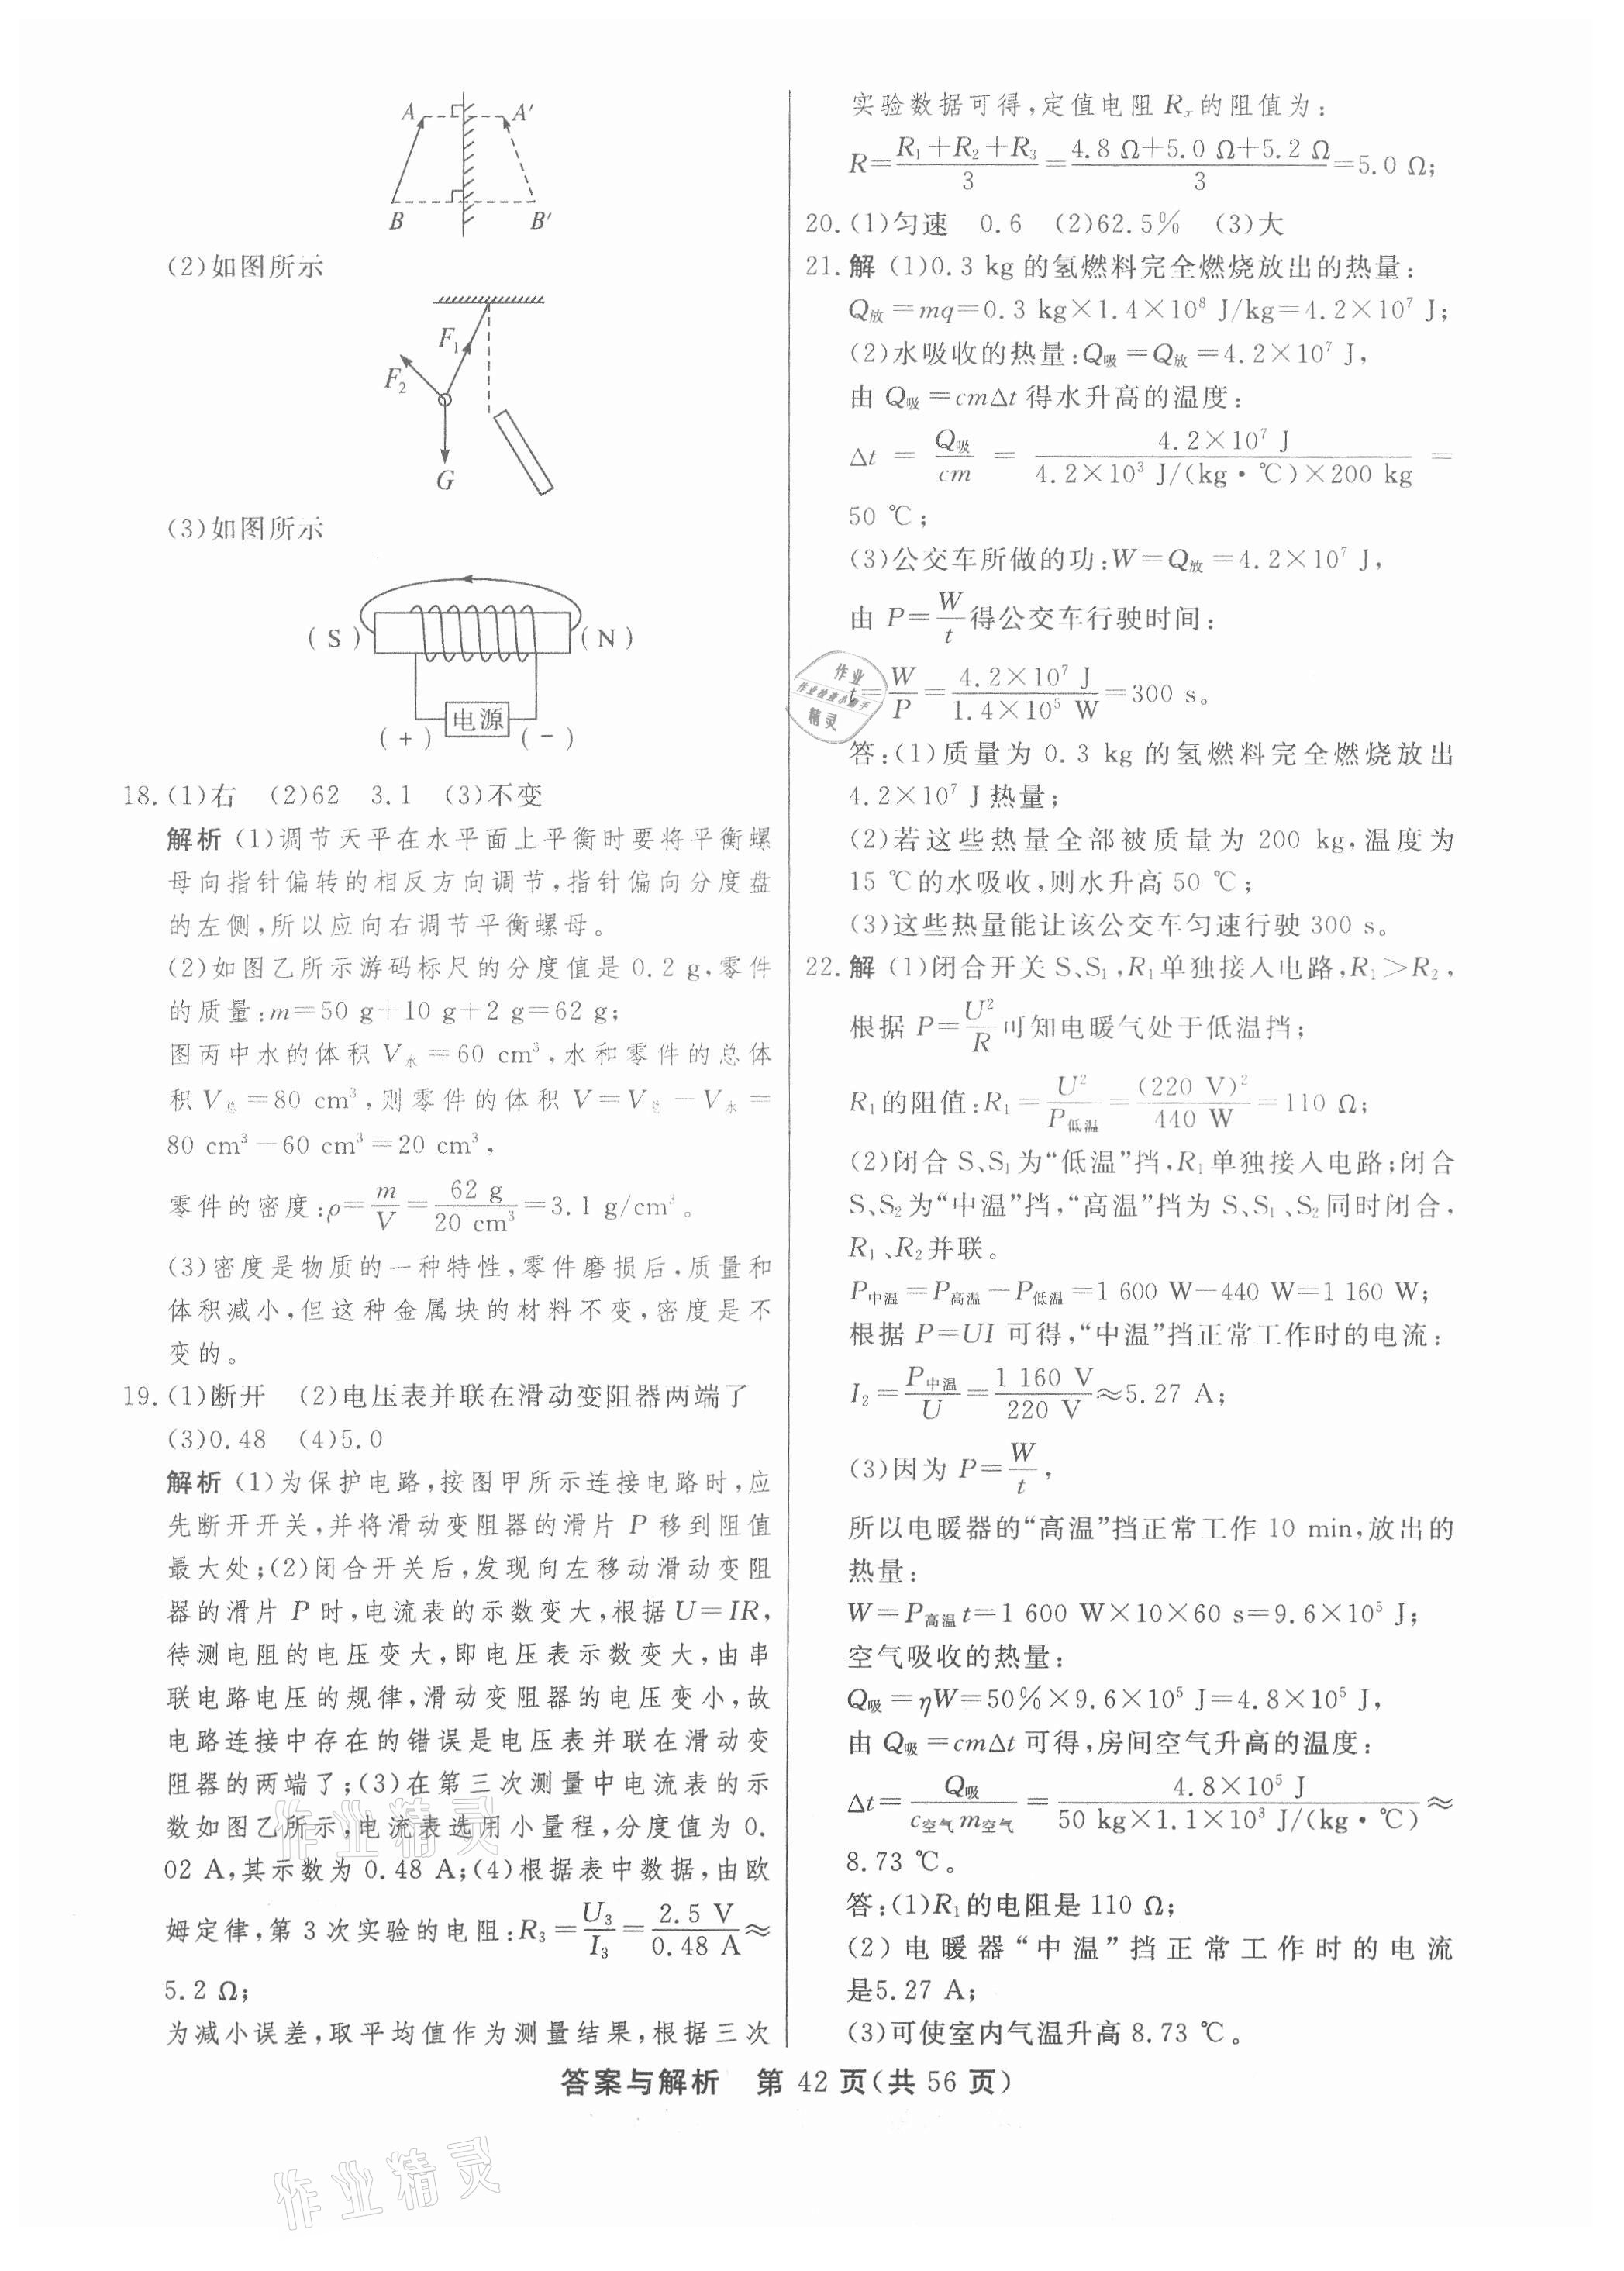 A A′
B B′
(2)如图所示
F₁
F₂
G
(3)如图所示
(S) (N)
电源
(+) (-)
18.(1)右 (2)62 3.1 (3)不变
解析 (1)调节天平在水平面上平衡时要将平衡螺
母向指针偏转的相反方向调节,指针偏向分度盘
的左侧,所以应向右调节平衡螺母。
(2)如图乙所示游码标尺的分度值是 0.2 g,零件
的质量:m=50 g+10 g+2 g=62 g;
图丙中水的体积 V水=60 cm³,水和零件的总体
积 V总=80 cm³,则零件的体积 V=V总-V水=
80 cm³-60 cm³=20 cm³,
零件的密度:ρ=m/V=62 g/20 cm³=3.1 g/cm³。
(3)密度是物质的一种特性,零件磨损后,质量和
体积减小,但这种金属块的材料不变,密度是不
变的。
19.(1)断开 (2)电压表并联在滑动变阻器两端了
(3)0.48 (4)5.0
解析 (1)为保护电路,按图甲所示连接电路时,应
先断开开关,并将滑动变阻器的滑片 P 移到阻值
最大处;(2)闭合开关后,发现向左移动滑动变阻
器的滑片 P 时,电流表的示数变大,根据 U=IR,
待测电阻的电压变大,即电压表示数变大,由串
联电路电压的规律,滑动变阻器的电压变小,故
电路连接中存在的错误是电压表并联在滑动变
阻器的两端了;(3)在第三次测量中电流表的示
数如图乙所示,电流表选用小量程,分度值为 0.
02 A,其示数为 0.48 A;(4)根据表中数据,由欧
姆定律,第 3 次实验的电阻:R₃=U₃/I₃=2.5 V/0.48 A≈
5.2 Ω;
为减小误差,取平均值作为测量结果,根据三次
实验数据可得,定值电阻 Rₓ的阻值为:
R=(R₁+R₂+R₃)/3=(4.8 Ω+5.0 Ω+5.2 Ω)/3=5.0 Ω;
20.(1)匀速 0.6 (2)62.5% (3)大
21.解 (1)0.3 kg 的氢燃料完全燃烧放出的热量:
Q放=mq=0.3 kg×1.4×10⁸ J/kg=4.2×10⁷ J;
(2)水吸收的热量:Q吸=Q放=4.2×10⁷ J,
由 Q吸=cmΔt 得水升高的温度:
Δt=Q吸/cm=4.2×10⁷ J/(4.2×10³ J/(kg·℃)×200 kg)=
50 ℃;
(3)公交车所做的功:W=Q放=4.2×10⁷ J,
由 P=W/t得公交车行驶时间:
t=W/P=4.2×10⁷ J/1.4×10⁵ W=300 s。
答:(1)质量为 0.3 kg 的氢燃料完全燃烧放出
4.2×10⁷ J 热量;
(2)若这些热量全部被质量为 200 kg,温度为
15 ℃的水吸收,则水升高 50 ℃;
(3)这些热量能让该公交车匀速行驶 300 s。
22.解 (1)闭合开关 S、S₁,R₁单独接入电路,R₁>R₂,
根据 P=U²/R可知电暖气处于低温挡;
R₁的阻值:R₁=U²/P低温=(220 V)²/440 W=110 Ω;
(2)闭合 S、S₁为“低温”挡,R₁单独接入电路;闭合
S、S₂为“中温”挡,“高温”挡为 S、S₁、S₂同时闭合,
R₁、R₂并联。
P中温=P高温-P低温=1 600 W-440 W=1 160 W;
根据 P=UI 可得,“中温”挡正常工作时的电流:
I₂=P中温/U=1 160 V/220 V≈5.27 A;
(3)因为 P=W/t,
所以电暖器的“高温”挡正常工作 10 min,放出的
热量:
W=P高温t=1 600 W×10×60 s=9.6×10⁵ J;
空气吸收的热量:
Q吸=ηW=50%×9.6×10⁵ J=4.8×10⁵ J,
由 Q吸=cmΔt 可得,房间空气升高的温度:
Δt=Q吸/c空气m空气=4.8×10⁵ J/(50 kg×1.1×10³ J/(kg·℃))≈
8.73 ℃。
答:(1)R₁的电阻是 110 Ω;
(2)电暖器“中温”挡正常工作时的电流
是5.27 A;
(3)可使室内气温升高 8.73 ℃。
答案与解析 第 42 页(共 56 页)
作业
作业检查小助手
精灵
作业精灵
作业精灵